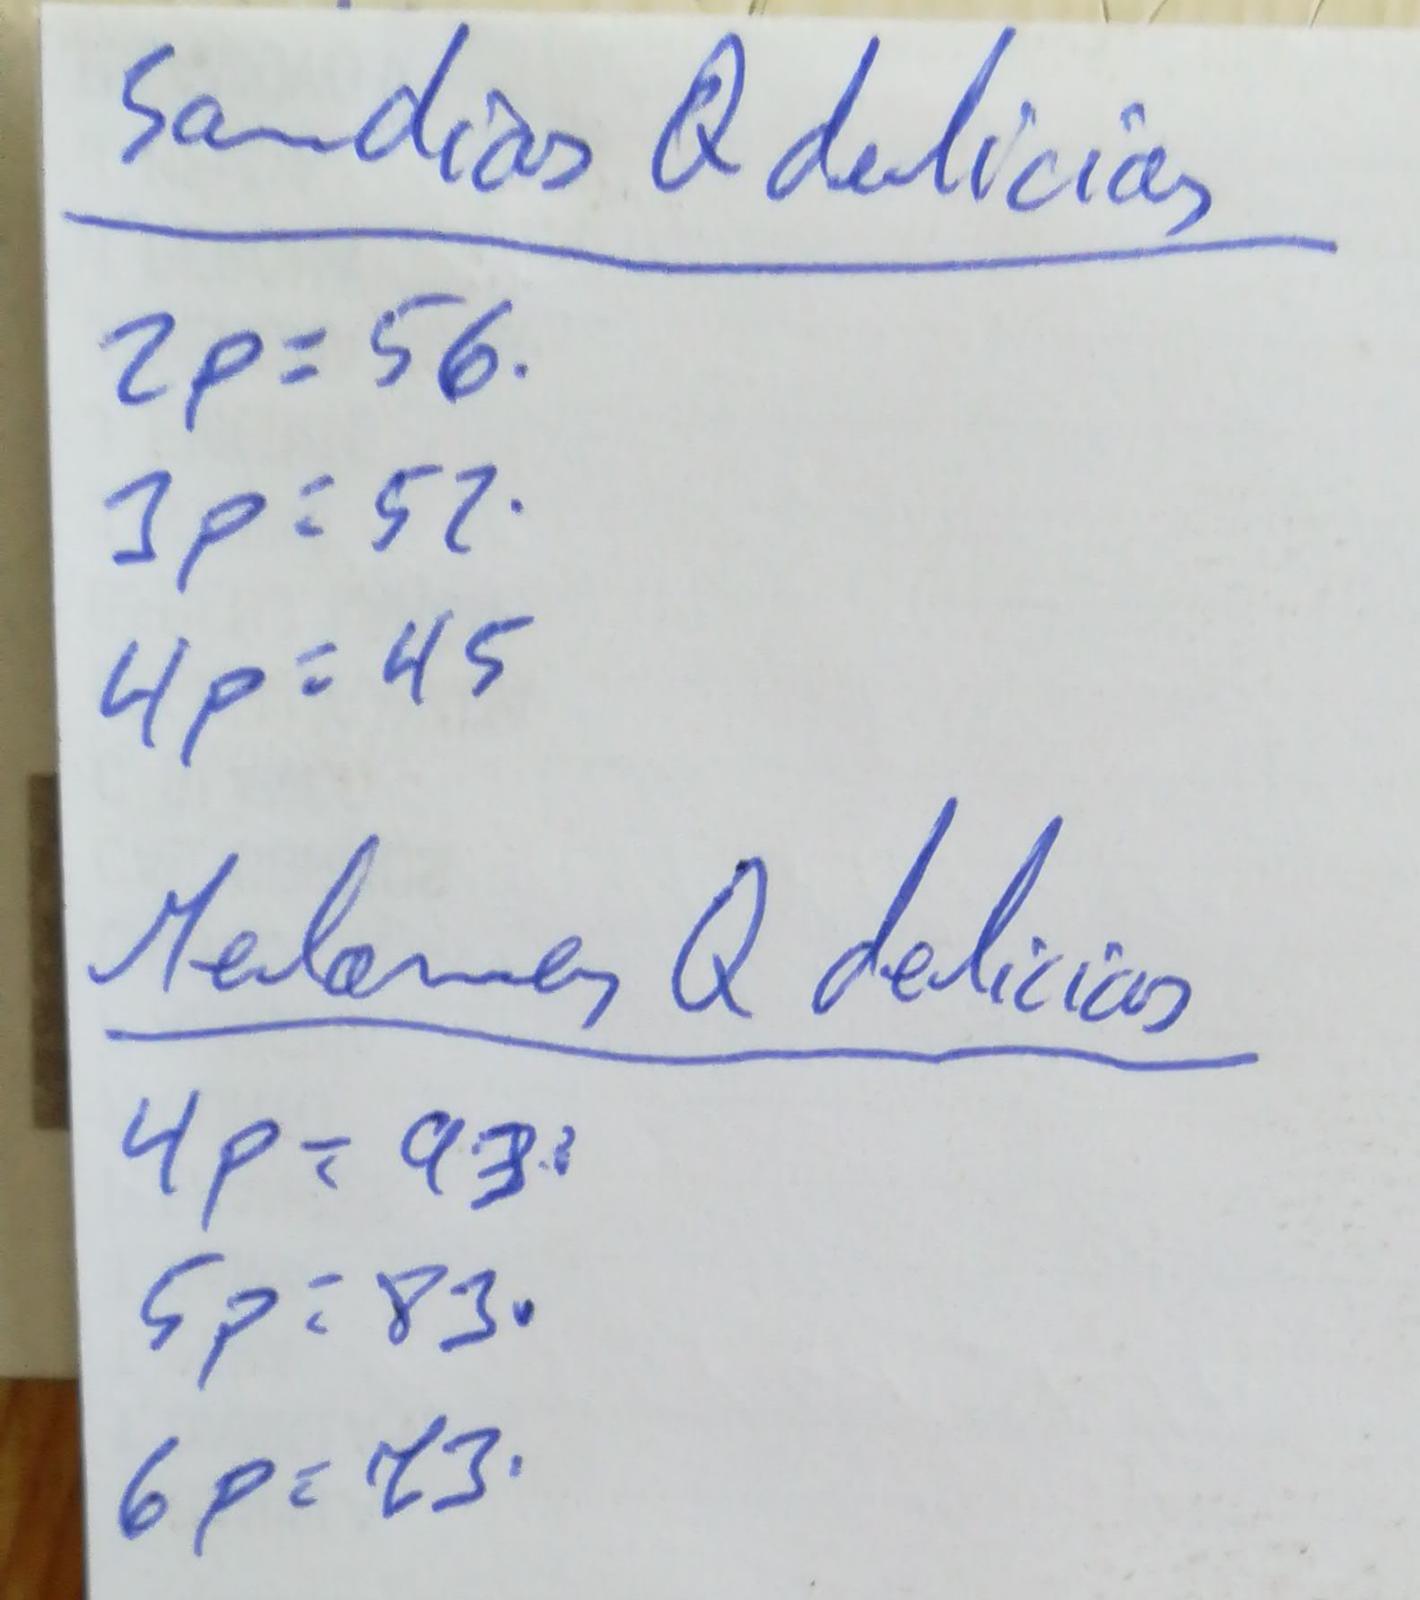 Sandias Q delicias
2p = 56.
3p = 52.
4p = 45
Melones Q delicias
4p = 93.
5p = 83.
6p = 73.